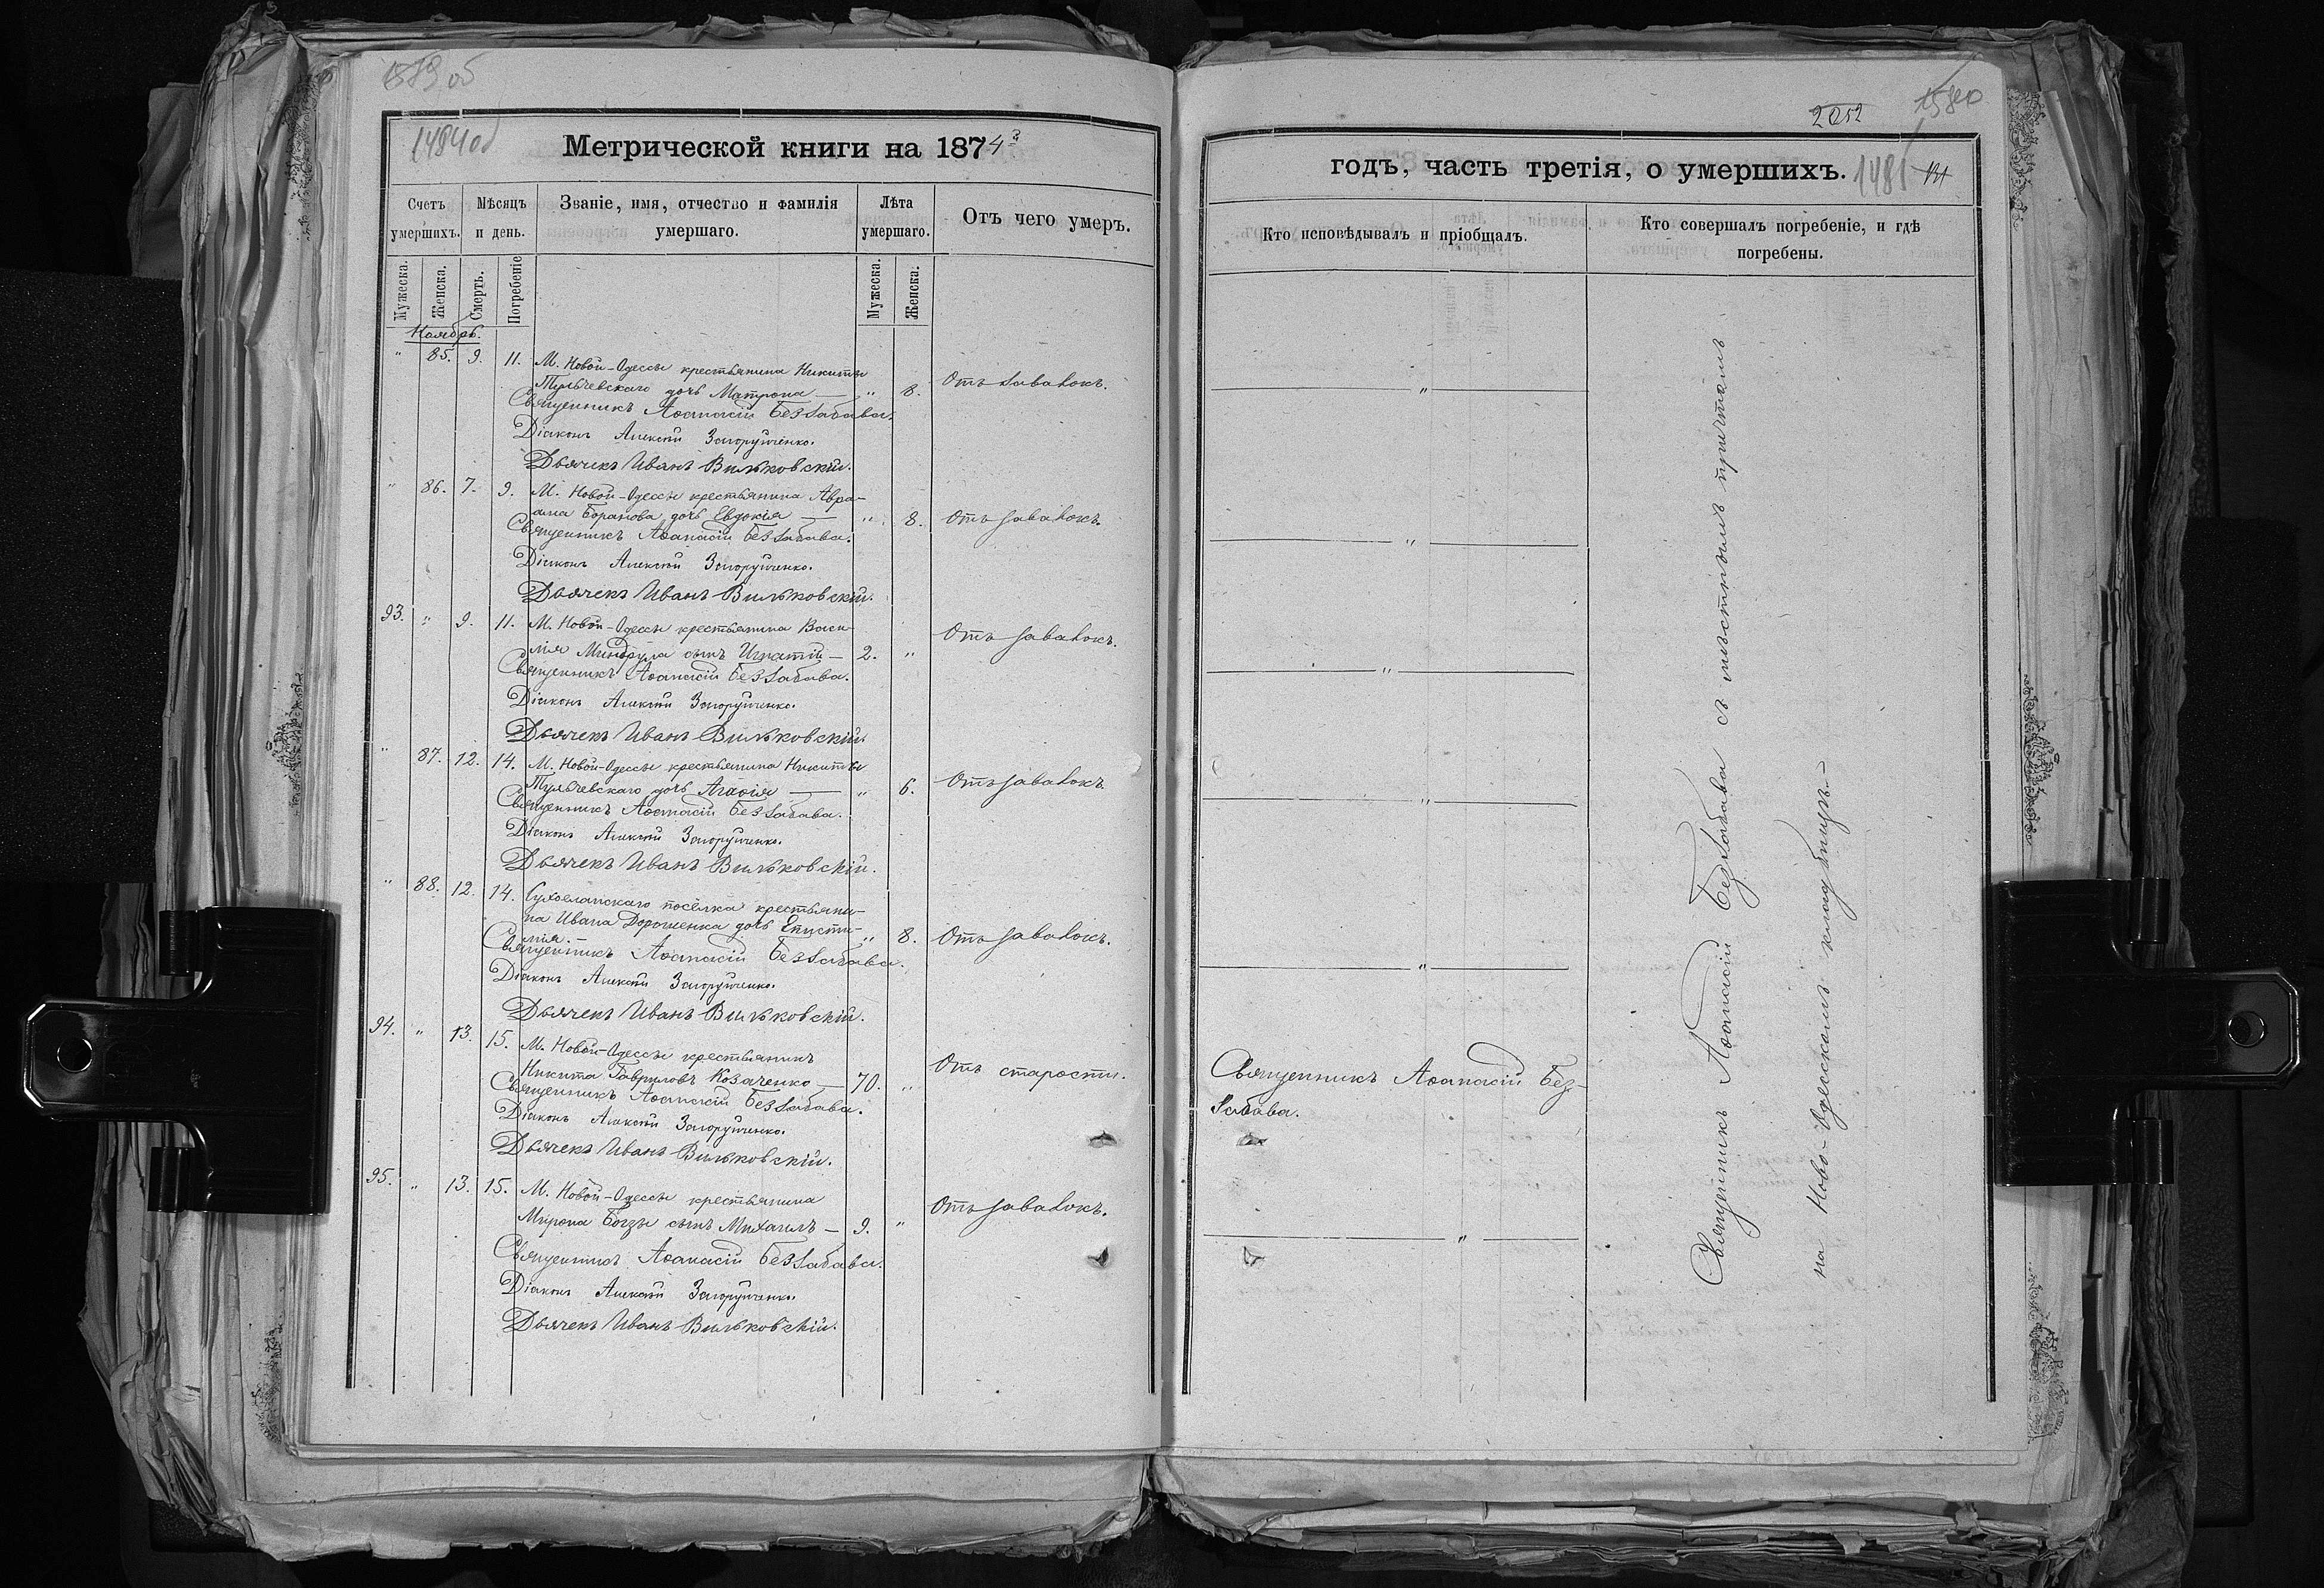 1579 об
1484 об
Метрической книги на 1874й
Счетъ умершихъ.
Мѣсяцъ и день.
Званіе, имя, отчество и фамилія умершаго.
Лѣта умершаго.
Отъ чего умеръ.
Мужеска.
Женска.
Смерть.
Погребеніе
Мужеска.
Женска.
Ноябрь.
" 85. 9. 11. М. Новой-Одессы крестьянина Никиты
Тульчевскаго дочь Матрона — " 8. Отъ давлокъ.
Священникъ Аѳанасій Беззабава.
Діаконъ Алексѣй Запоруйченко.
Дьячекъ Иванъ Вильковскій.
" 86. 7. 9. М. Новой-Одессы крестьянина Авра-
ама Боранова дочь Евдокія — " 8. Отъ давлокъ.
Священникъ Аѳанасій Беззабава.
Діаконъ Алексѣй Запоруйченко.
Дьячекъ Иванъ Вильковскій.
93. " 9. 11. М. Новой-Одессы крестьянина Васи-
лія Миндрула сынъ Игнатій — 2. " Отъ давлокъ.
Священникъ Аѳанасій Беззабава.
Діаконъ Алексѣй Запоруйченко.
Дьячекъ Иванъ Вильковскій.
" 87. 12. 14. М. Новой-Одессы крестьянина Никиты
Тульчевскаго дочь Агаѳія — " 6. Отъ давлокъ.
Священникъ Аѳанасій Беззабава.
Діаконъ Алексѣй Запоруйченко.
Дьячекъ Иванъ Вильковскій.
" 88. 12. 14. Сухоеланскаго посёлка крестьяни-
на Ивана Дорошенка дочь Еписти-
мія. " 8. Отъ давлокъ.
Священникъ Аѳанасій Беззабава.
Діаконъ Алексѣй Запоруйченко.
Дьячекъ Иванъ Вильковскій.
94. " 13. 15. М. Новой-Одессы крестьянинъ
Никита Гавриловъ Козаченко — 70. " Отъ старости.
Священникъ Аѳанасій Беззабава.
Діаконъ Алексѣй Запоруйченко.
Дьячекъ Иванъ Вильковскій.
95. " 13. 15. М. Новой-Одессы крестьянина
Мирона Богзы сынъ Михаилъ — 9. " Отъ давлокъ.
Священникъ Аѳанасій Беззабава.
Діаконъ Алексѣй Запоруйченко.
Дьячекъ Иванъ Вильковскій.
2052
1580
годъ, часть третія, о умершихъ.
1485
Кто исповѣдывалъ и пріобщалъ.
Кто совершалъ погребеніе, и гдѣ погребены.
"
"
"
"
"
Священникъ Аѳанасій Без-
забава.
"
Священникъ Аѳанасій Беззабава съ мѣстнымъ причтомъ
на Ново-Одесскомъ кладбищѣ.—